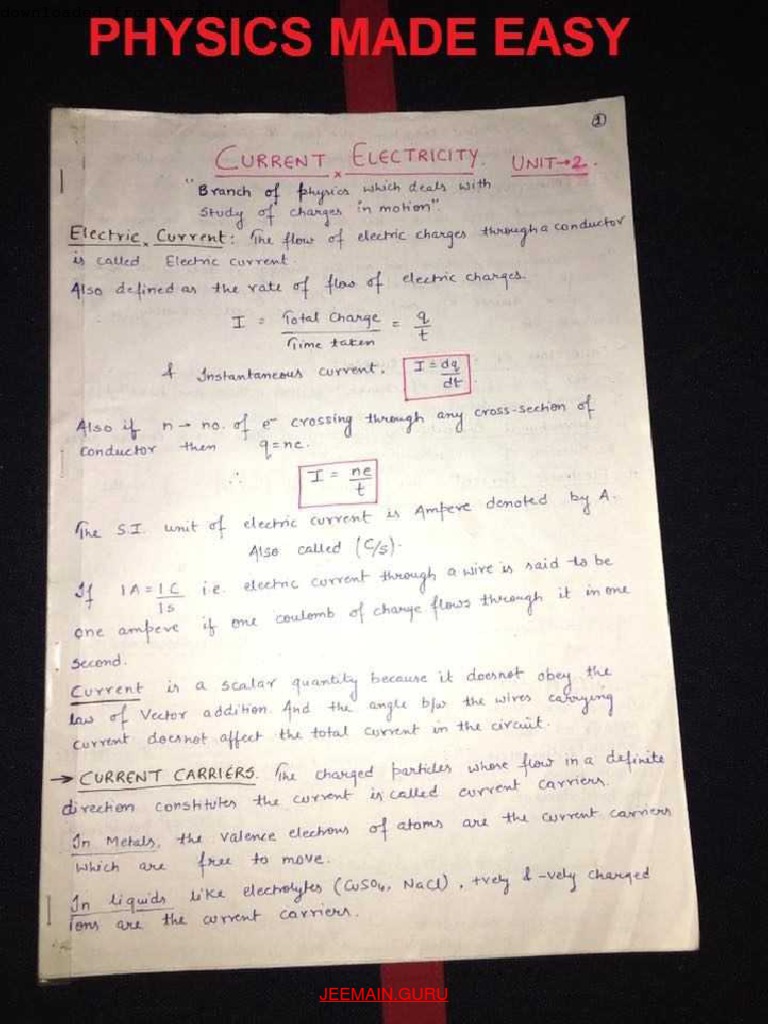 downloaded from jeemain.guru
PHYSICS MADE EASY
1
CURRENT ELECTRICITY. UNIT→2.
"Branch of physics which deals with
study of charges in motion".
Electric Current: The flow of electric charges through a conductor
is called Electric current.
Also defined as the rate of flow of electric charges.
I = Total Charge / Time taken = q / t
& Instantaneous current. I = dq / dt
Also if n → no. of e⁻ crossing through any cross-section of
conductor then q=ne.
∴ I = ne / t
The S.I. unit of electric current is Ampere denoted by A.
Also called (C/s).
If 1A = 1C / 1s i.e. electric current through a wire is said to be
one ampere if one coulomb of charge flows through it in one
second.
Current is a scalar quantity because it doesnot obey the
law of Vector addition. And the angle b/w the wires carrying
current doesnot affect the total current in the circuit.
→ CURRENT CARRIERS. The charged particles whose flow in a definite
direction constitutes the current is called current carriers.
In Metals, the valence electrons of atoms are the current carriers
which are free to move.
In liquids like electrolytes (CuSO₄, NaCl), +vely & -vely charged
ions are the current carriers.
JEEMAIN.GURU